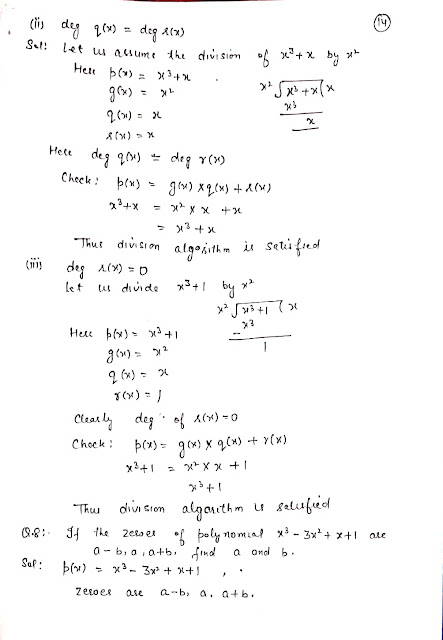 (ii) deg q(x) = deg r(x)
14
Sol: Let us assume the division of x³+x by x²
Here p(x) = x³+x
x² √x³+x ( x
g(x) = x²
x³
q(x) = x
x
r(x) = x
Here deg q(x) = deg r(x)
Check: p(x) = g(x) × q(x) + r(x)
x³+x = x² × x + x
= x³+x
Thus division algorithm is satisfied
(iii) deg r(x) = 0
Let us divide x³+1 by x²
x² √x³+1 ( x
Here p(x) = x³+1
-x³
g(x) = x²
1
q(x) = x
r(x) = 1
Clearly deg of r(x) = 0
Check: p(x) = g(x) × q(x) + r(x)
x³+1 = x² × x + 1
x³+1
Thus division algorithm is satisfied
Q.8:- If the zeroes of polynomial x³-3x²+x+1 are
a-b, a, a+b, find a and b.
Sol: p(x) = x³-3x²+x+1,
zeroes are a-b, a, a+b.